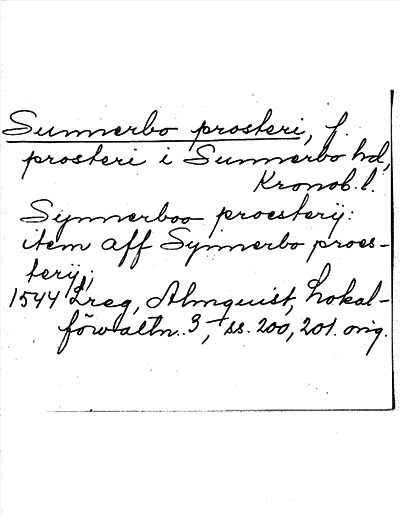 Sunnerbo prosteri, f.
prosteri i Sunnerbo hd,
Kronob. l.
Synnerboo proesterij:
item aff Synnerbo proes-
terij;
1544 Lreg, Almquist, Lokal-
förvaltn. 3, ss. 200, 201. orig.